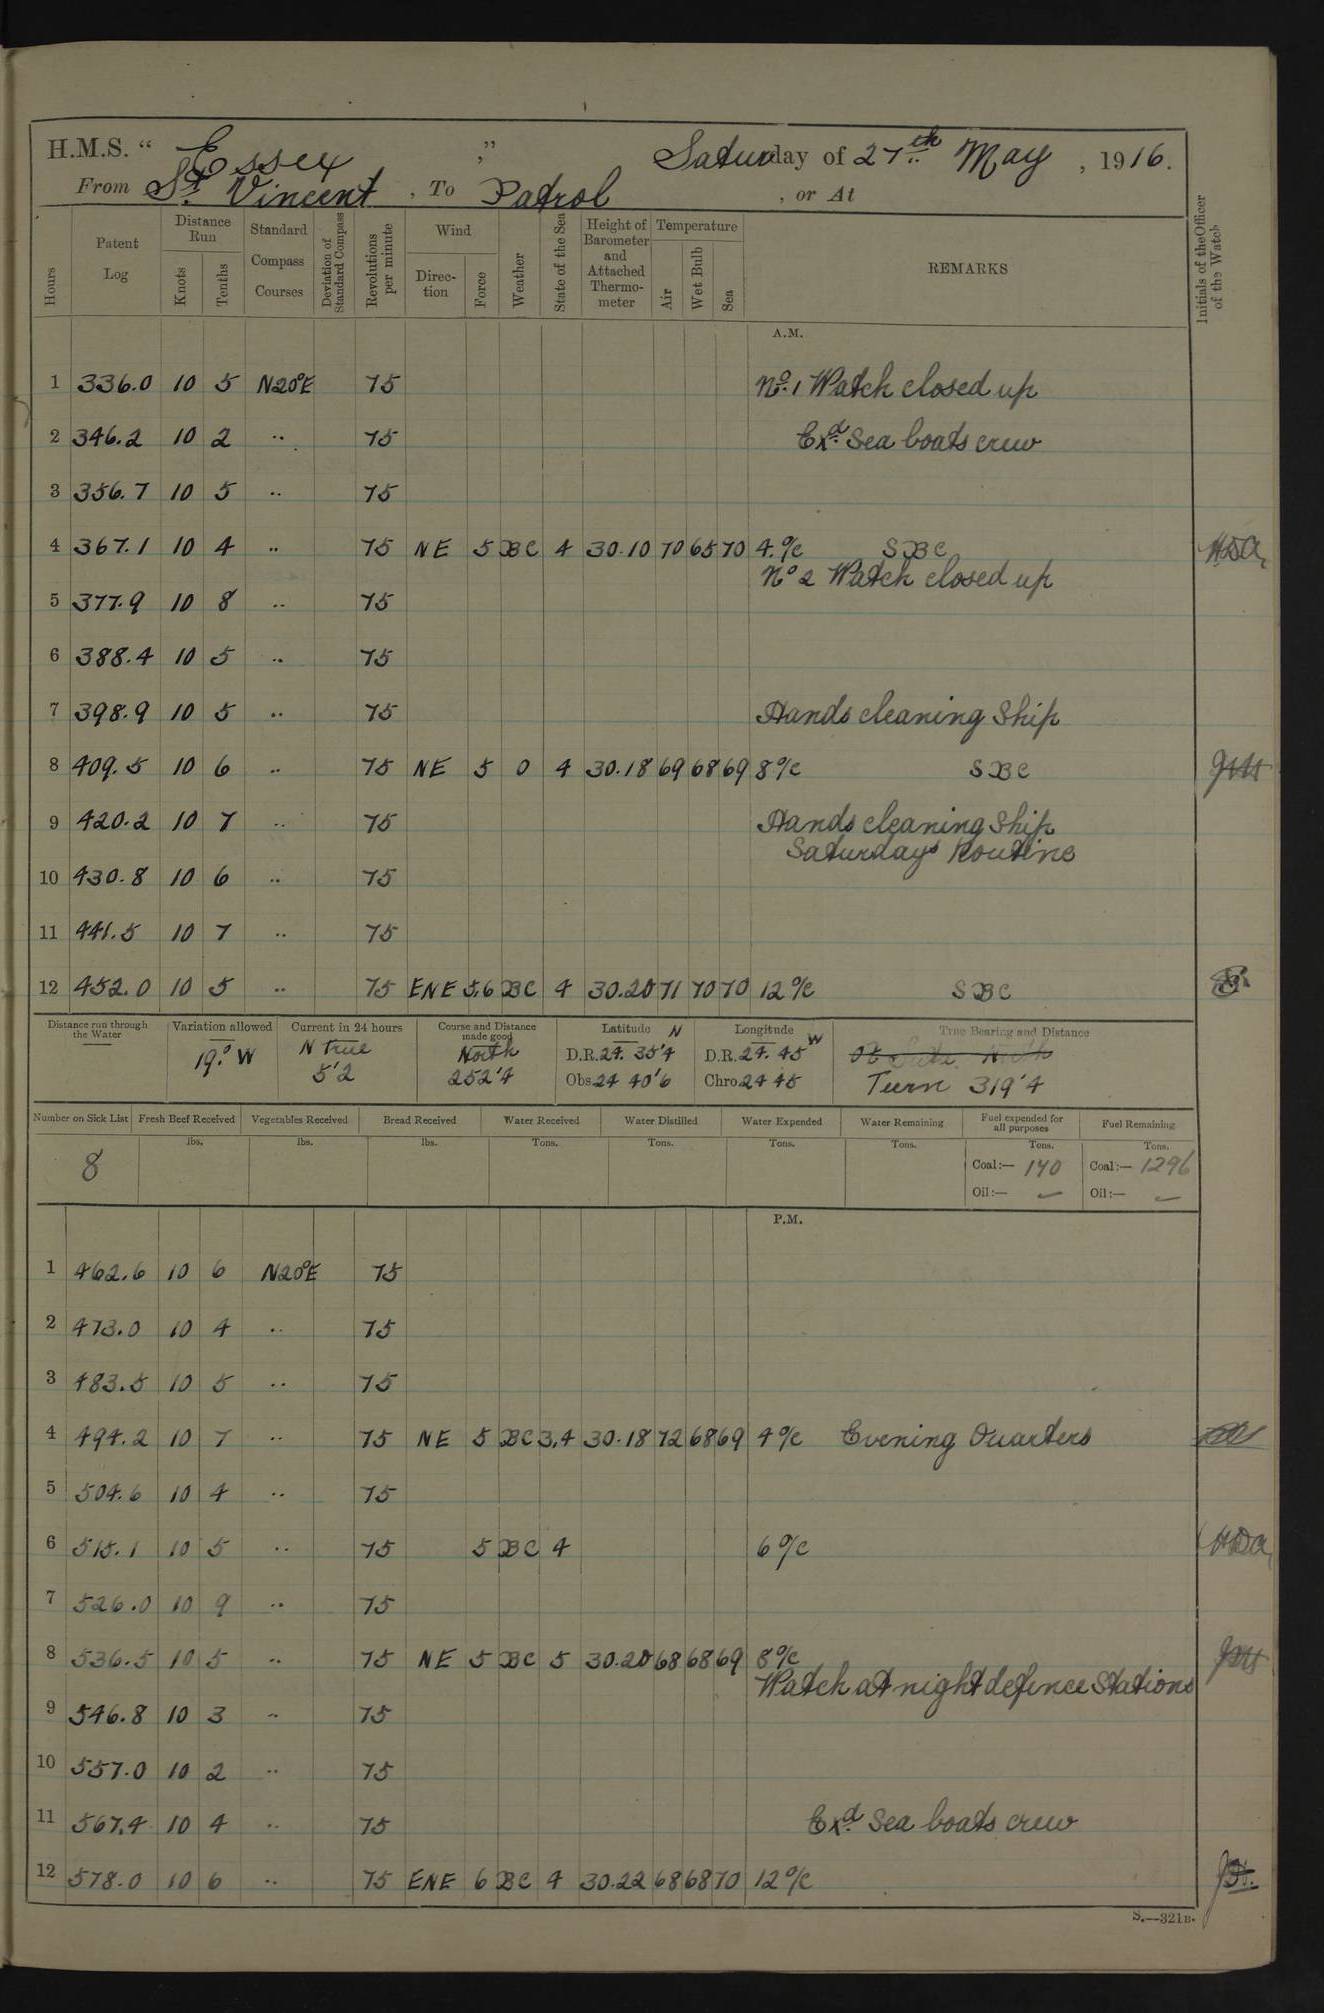 H.M.S. " Essex ," Saturday of 27th May , 1916.
From St. Vincent , To Patrol , or At
Hours Patent Log Distance Run Knots Tenths Standard Compass Courses Deviation of Standard Compass Revolutions per minute Wind Direction Force Weather State of the Sea Height of Barometer and Attached Thermometer Temperature Air Wet Bulb Sea REMARKS Initials of the Officer of the Watch
A.M.
1 336.0 10 5 N20°E 75 No. 1 Watch closed up
2 346.2 10 2 .. 75 Exd. Sea boats crew
3 356.7 10 5 .. 75
4 367.1 10 4 .. 75 NE 5 BC 4 30.10 70 65 70 4.o/c SBC
No 2 Watch closed up
5 377.9 10 8 .. 75
6 388.4 10 5 .. 75
7 398.9 10 5 .. 75 Hands cleaning Ship
8 409.5 10 6 .. 75 NE 5 O 4 30.18 69 68 69 8o/c SBC
9 420.2 10 7 .. 75 Hands cleaning Ship
Saturdays Routine
10 430.8 10 6 .. 75
11 441.5 10 7 .. 75
12 452.0 10 5 .. 75 ENE 5.6 BC 4 30.20 71 70 70 12 o/c SBC
Distance run through the Water Variation allowed 19.° W Current in 24 hours N True 5'2 Course and Distance made good North 252'4 Latitude N D.R. 24. 35'4 Obs. 24 40'6 Longitude W D.R. 24. 45 Chro. 24 45 True Bearing and Distance Turn 319'4
Number on Sick List Fresh Beef Received Vegetables Received Bread Received Water Received Water Distilled Water Expended Water Remaining Fuel expended for all purposes Fuel Remaining
lbs. lbs. lbs. Tons. Tons. Tons. Tons. Tons. Tons.
8 Coal:— 140 Coal:— 1296
Oil:— Oil:—
P.M.
1 462.6 10 6 N20°E 75
2 473.0 10 4 .. 75
3 483.5 10 5 .. 75
4 494.2 10 7 .. 75 NE 5 BC 3.4 30.18 72 68 69 4 o/c Evening Quarters
5 504.6 10 4 .. 75
6 515.1 10 5 .. 75 5 BC 4 6 o/c
7 526.0 10 9 .. 75
8 536.5 10 5 .. 75 NE 5 BC 5 30.20 68 68 69 8o/c
Watch at night defence Stations
9 546.8 10 3 .. 75
10 557.0 10 2 .. 75
11 567.4 10 4 .. 75 Exd. Sea boats crew
12 578.0 10 6 .. 75 ENE 6 BC 4 30.22 68 68 70 12 o/c
S.—321B.